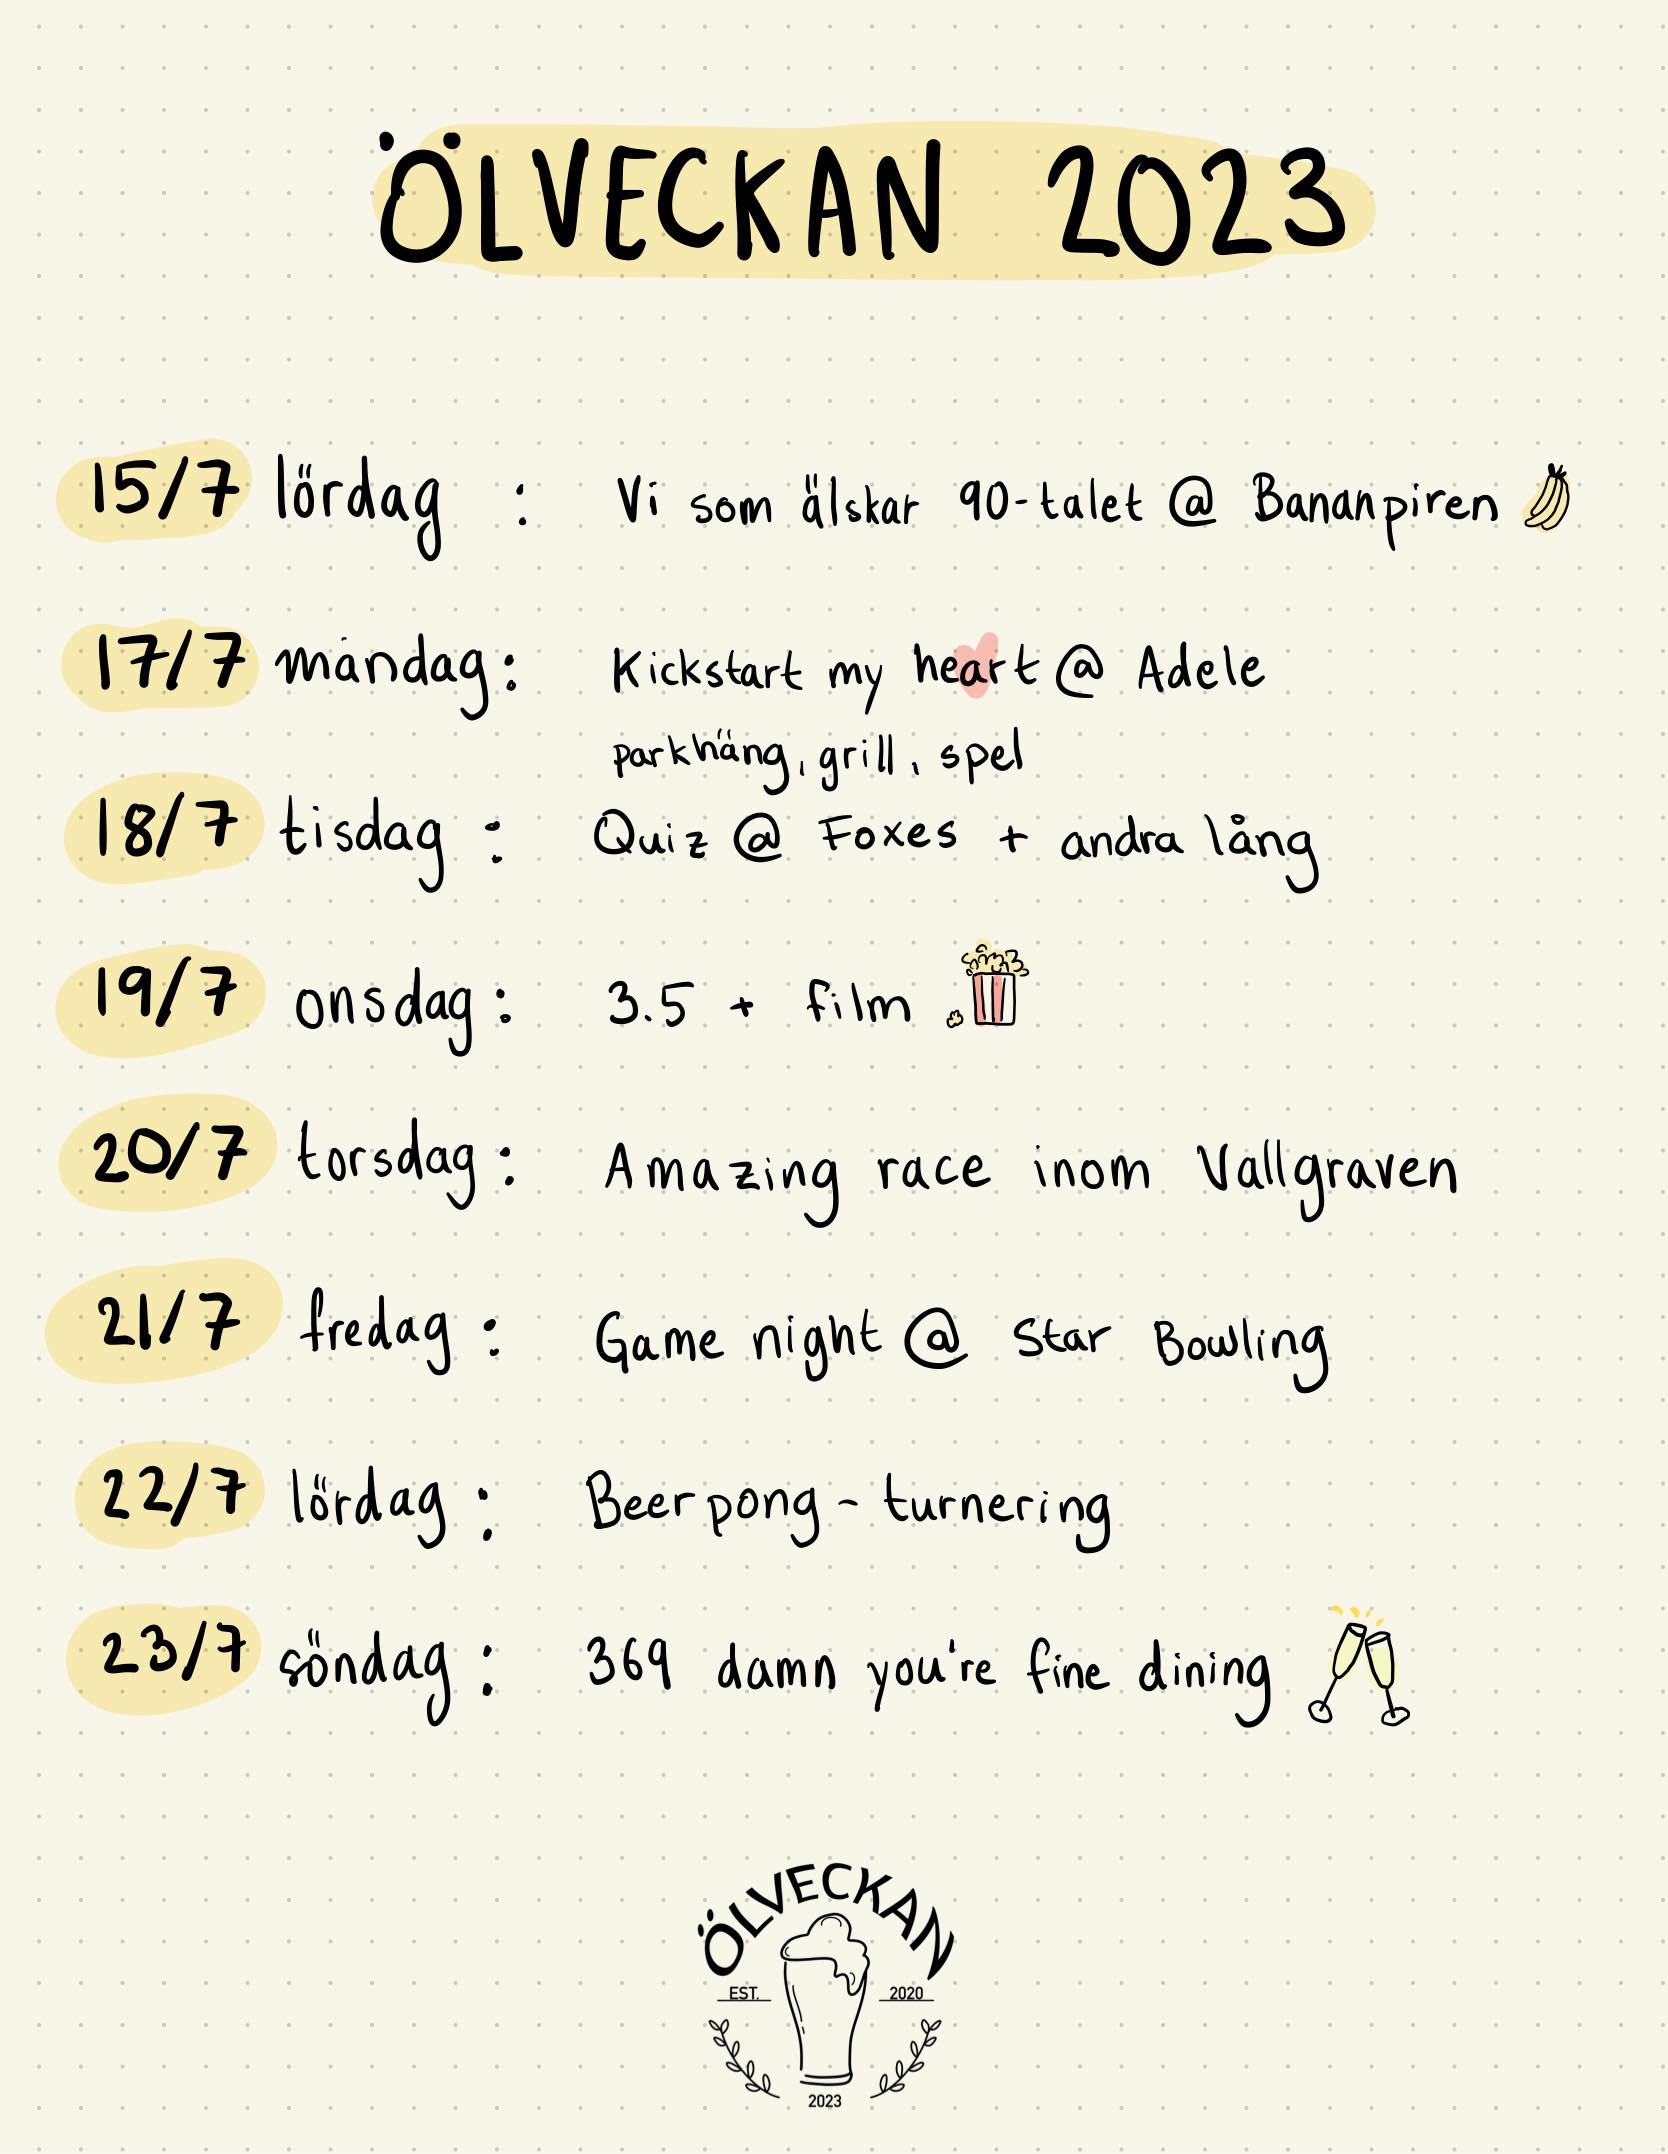 ÖLVECKAN 2023
15/7 lördag : Vi som älskar 90-talet @ Bananpiren
17/7 måndag: Kickstart my heart @ Adele
parkhäng, grill, spel
18/7 tisdag : Quiz @ Foxes + andra lång
19/7 onsdag: 3.5 + film
20/7 torsdag: Amazing race inom Vallgraven
21/7 fredag: Game night @ Star Bowling
22/7 lördag: Beerpong-turnering
23/7 söndag: 369 damn you're fine dining
ÖLVECKAN
EST. 2020
2023